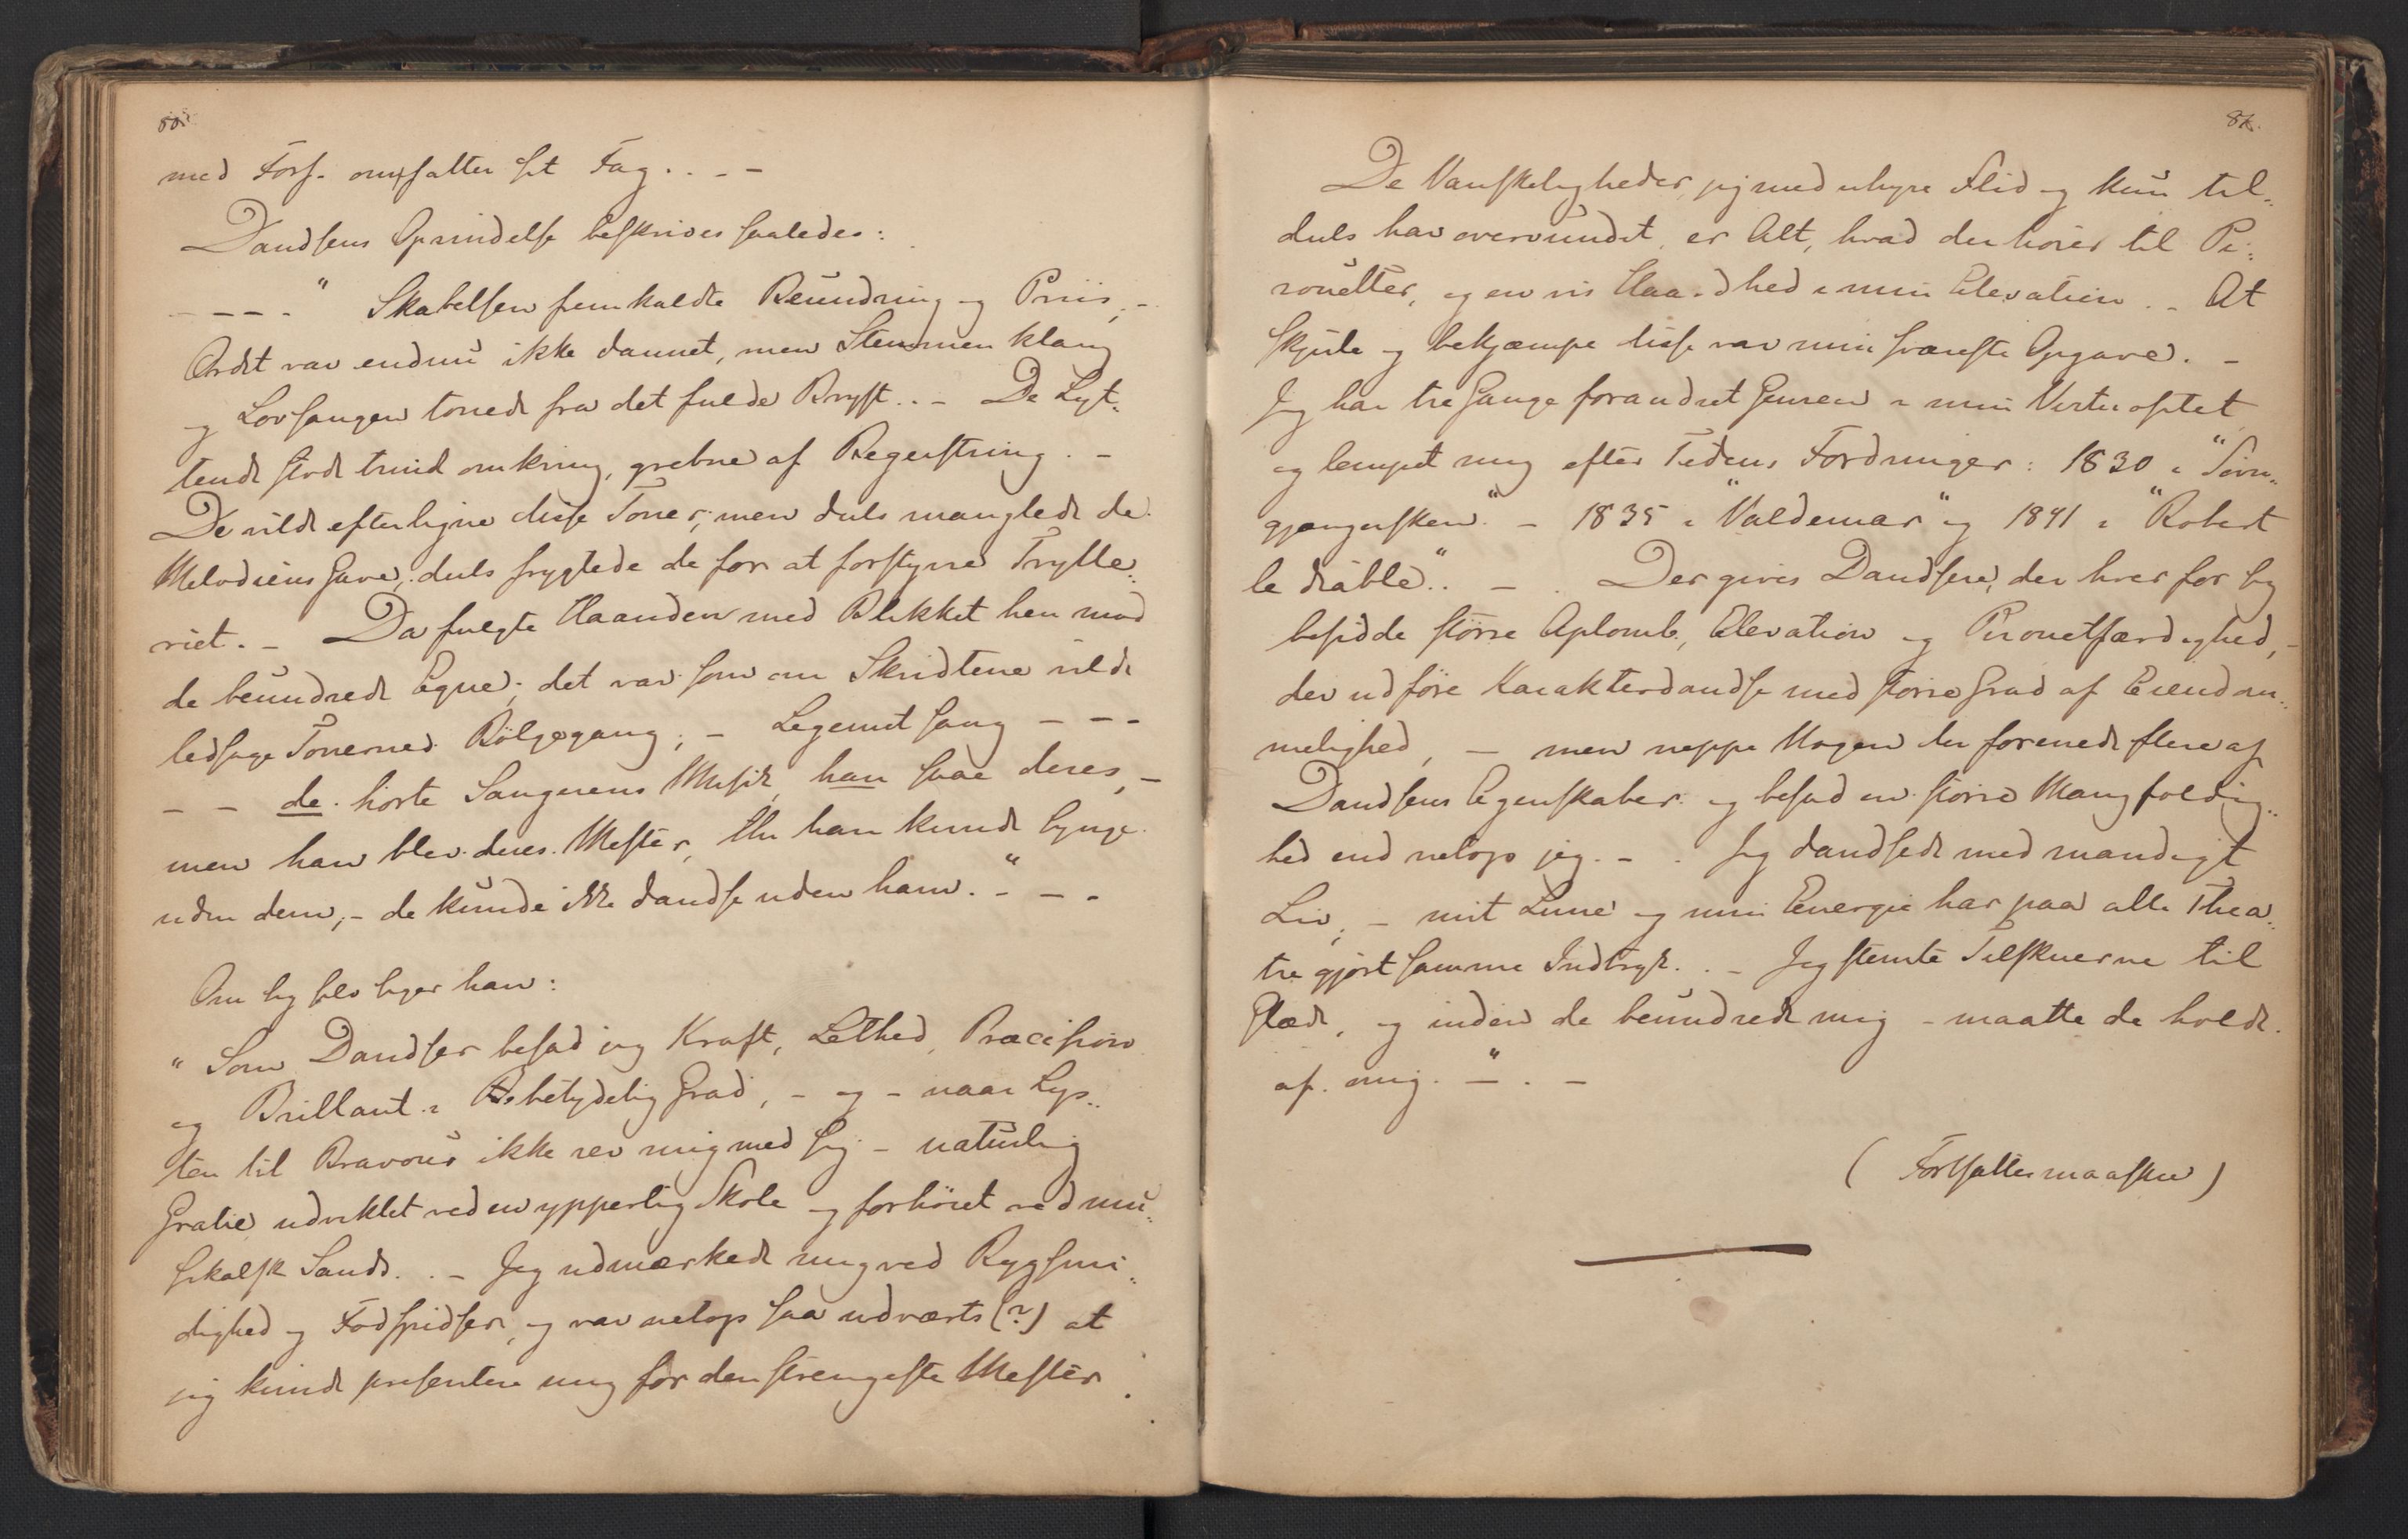 80.
med Forf. omfatter sit Fag. . - -
Dandsens Oprindelse beskrives saaledes:
- - - - " Skabelsen fremkaldte Beundring og Priis; -
Ordet var endnu ikke dannet, men Stemmen klang
og Lovsangen tonede fra det fulde Bryst. . - De Lyt-
tende stode trind omkring, grebne af Begeistring. -
De vilde efterligne disse Toner; men dels manglede de
Melodiens Gave, dels frygtede de for at forstyrre Trylle-
riet. - Da fulgte Haanden med Blikket hen mod
de beundrede Egne; det var som om Skridtene vilde
ledsage Tonernes Bölgegang; - Legemet sang - - -
- - de hörte Sangerens Musik, han saae deres, -
men han blev deres Mester, thi han kunde synge
uden dem, - de kunde ikke dandse uden ham. " - -
Om sig selv siger han:
" Som Dandser besad jeg Kraft, Lethed, Præcision
og Brillant i betydelig Grad, - og - naar Lys-
ten til Bravour ikke rev mig med sig - naturlig
Gratie, udviklet ved en ypperlig Skole og forhöiet ved mu-
sikalsk Sands. . - Jeg udmærkede mig ved Rygsmi-
dighed og Fodspidser, og var netop saa udværts (?) at
jeg kunde presentere mig for den strengeste Mester.
81.
De Vanskeligheder, jeg med uhyre Flid og kun til-
dels har overvundet, er Alt, hvad der hörer til Pi-
rouetter, og en vis Haardhed i min Elevation. - At
skjule og bekjæmpe disse var min sværeste Opgave. -
Jeg har tre Gange forandret Genren i min Virtuositet
og lempet mig efter Tidens Fordringer: 1830 i "Sövn-
gjængersken" - 1835 i "Valdemar" og 1841 i "Robert
le diable". - Der gives Dandsere, der hver for sig
besidde större Aplomb, Elevation og Pirouetfærdighed, -
der udföre Karakterdandse med större Grad af Eiendom-
melighed, - men neppe Nogen der forenede flere af
Dandsens Egenskaber og besad en större Mangfoldig-
hed end netop jeg. - Jeg dandsede med mandigt
Liv, - mit Lune og min Energie har paa alle Thea-
tre gjort samme Indtryk. . - Jeg stemte Tilskuerne til
Glæde, og inden de beundrede mig - maatte de holde
af mig. - " . -
( Fortsættes maaskee )